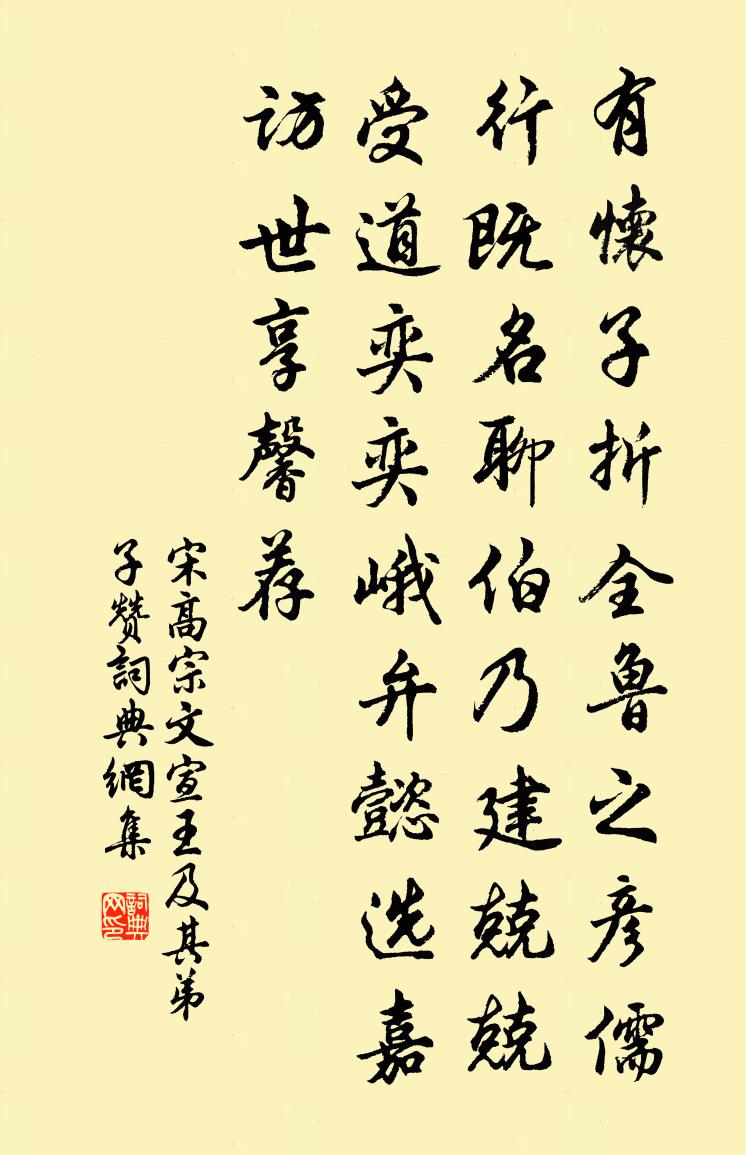 有懷子折全魯之彥儒
行既名聊伯乃建兢兢
受道奕奕峨弁懿选嘉
访世享馨荐
宋高宗文宣王及其弟
子赞詞典網集
詞典
网印